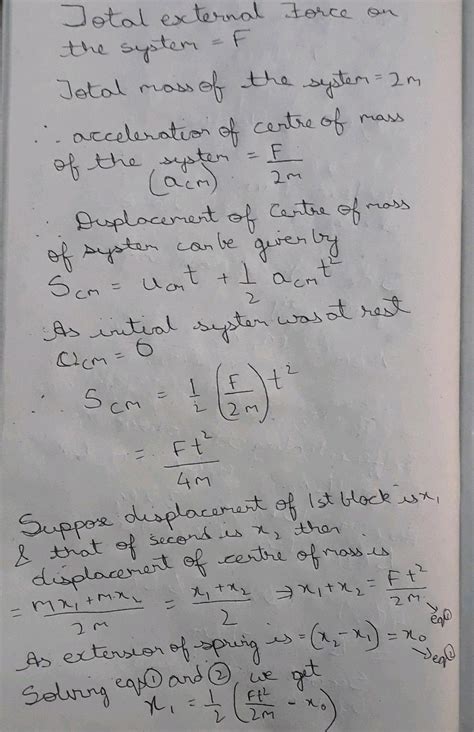 Total external Force on
the system = F
Total mass of the system = 2m
∴ acceleration of centre of mass
of the system = F/2m
(a_cm)
∴ Displacement of Centre of mass
of system can be given by
S_cm = u_cm t + 1/2 a_cm t²
As initial system was at rest
u_cm = 0
∴ S_cm = 1/2 (F/2m) t²
= Ft²/4m
Suppose displacement of 1st block is x₁
& that of second is x₂ then
displacement of centre of mass is
= (mx₁ + mx₂)/2m = (x₁ + x₂)/2 ⇒ x₁ + x₂ = Ft²/2m → eq①
As extension of spring is = (x₂ - x₁) = x₀ → eq②
Solving eqs ① and ② we get
x₁ = 1/2 (Ft²/2m - x₀)